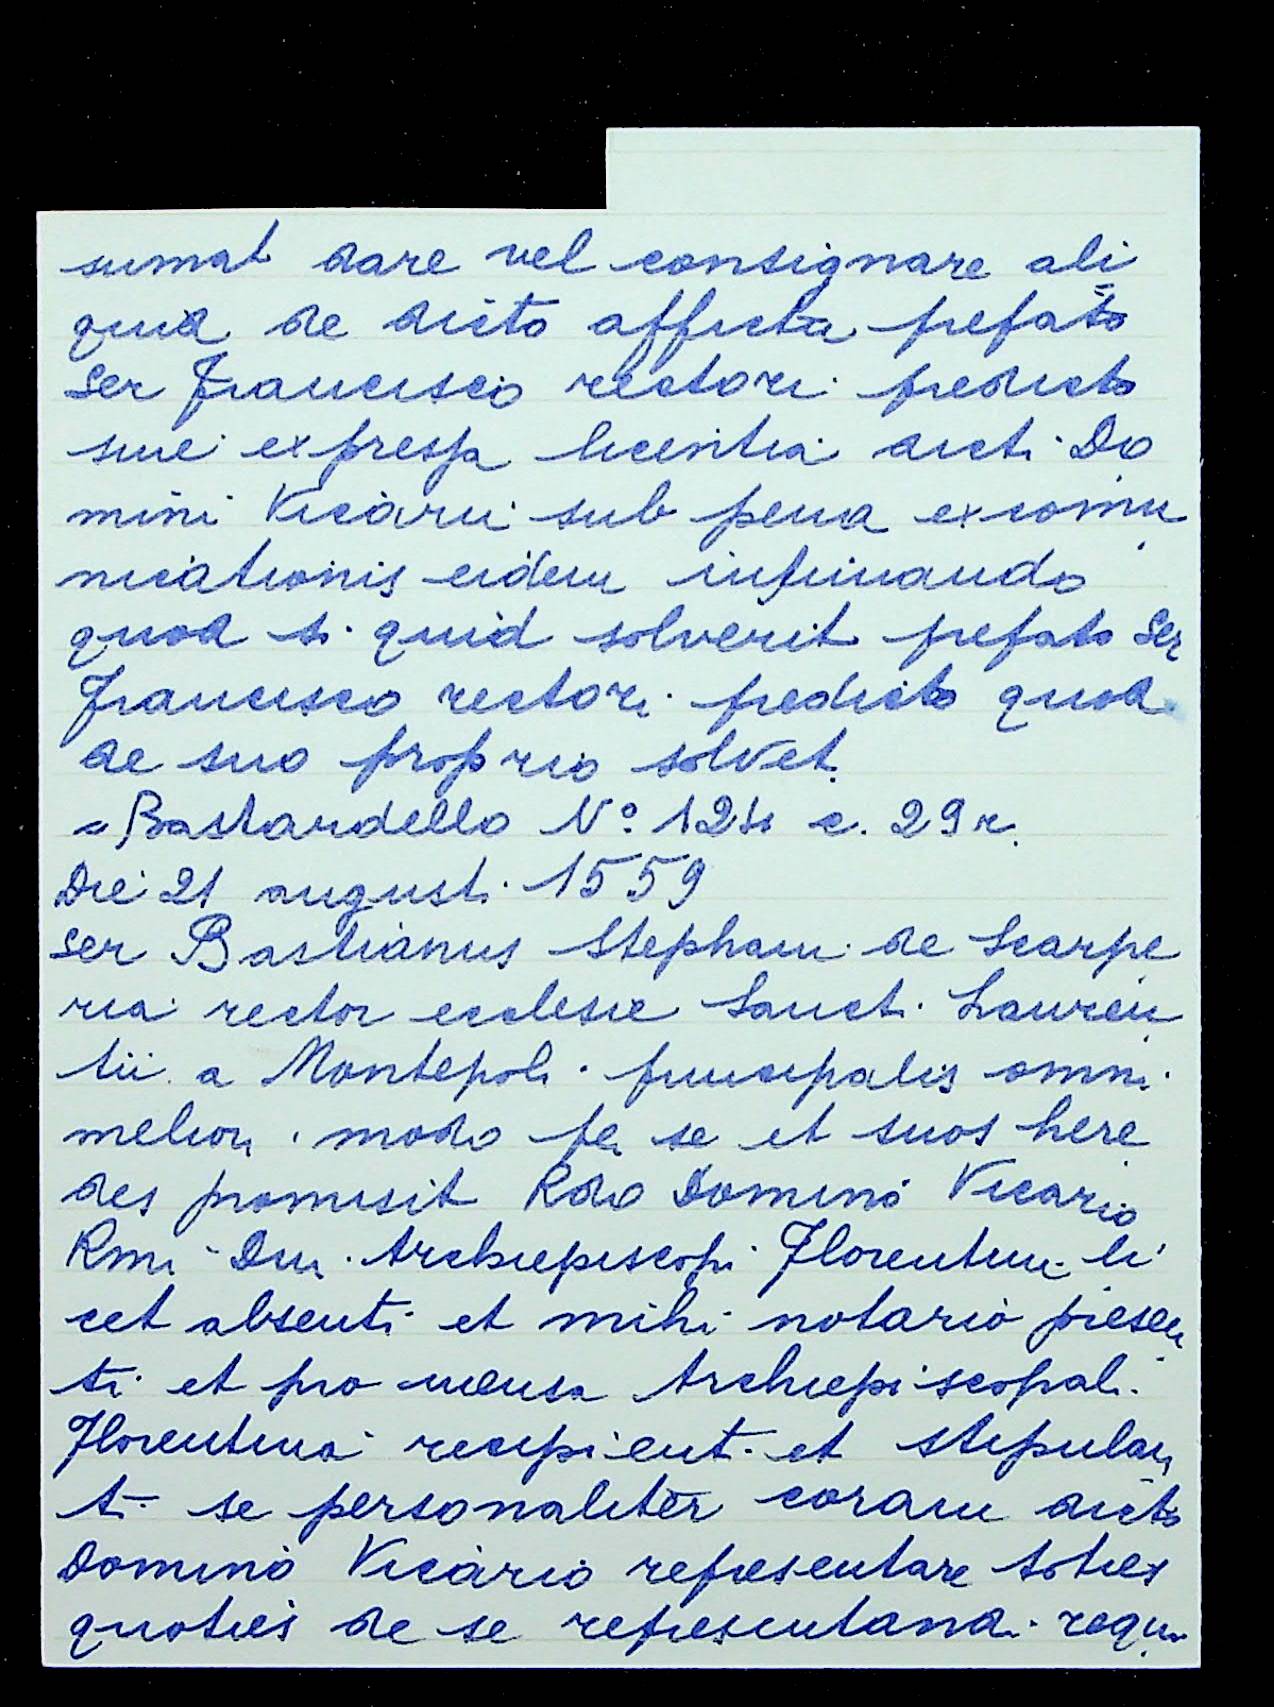 sumat dare vel consignare ali
quid de dicto affictu prefato
ser Francisco rectori predicto
sine expressa licentia dicti Do
mini Vicarii sub pena excomu
nicationis eidem intimando
quod si quid solverit prefato ser
Francisco rectori predicto quod
de suo proprio solvet.
= Bastardello N° c. 29 r.
Die 21 augusti 1559
ser Bastianus Stephani de Scarpe
ria rector ecclesie Sancti Lauren
tii a Montepoli principalis omni
meliori modo per se et suos here
des promisit Rdo Domino Vicario
Rmi Dni Archiepiscopi Florentini li
cet absenti et mihi notario presen
ti et pro mensa Archiepiscopali
Florentina recipienti et stipulan
ti se personaliter coram dicto
Domino Vicario representare toties
quoties de se representandi requi